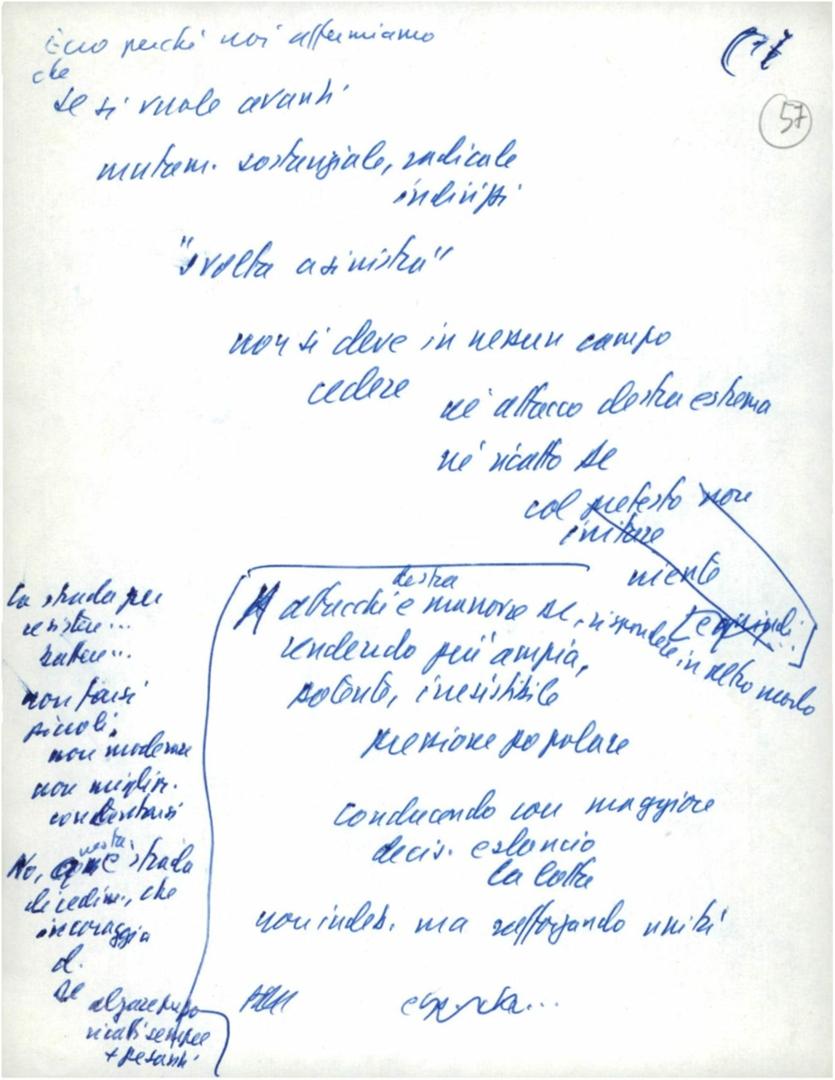 Ecco perché noi affermiamo
che
se si vuole avanti
mutam. sostanziale, radicale
indirizzi
"svolta a sinistra"
non si deve in nessun campo
cedere
né attacco destra estrema
né ricatto
col pretesto non
irritare
niente
[e quindi..
destra
attacchi e manovre, rispondere in altro modo
rendendo più ampia,
potente, irresistibile
pressione popolare
conducendo con maggiore
decis. e slancio
la lotta
non indeb. ma rafforzando unità
La strada per
resistere...
battere...
non farsi
piccoli,
non moderare
non miglior.
contentarsi
No, questa è strada
di cedim., che
incoraggia
d.
alzare
ricatti sempre
+ pesanti
17
57